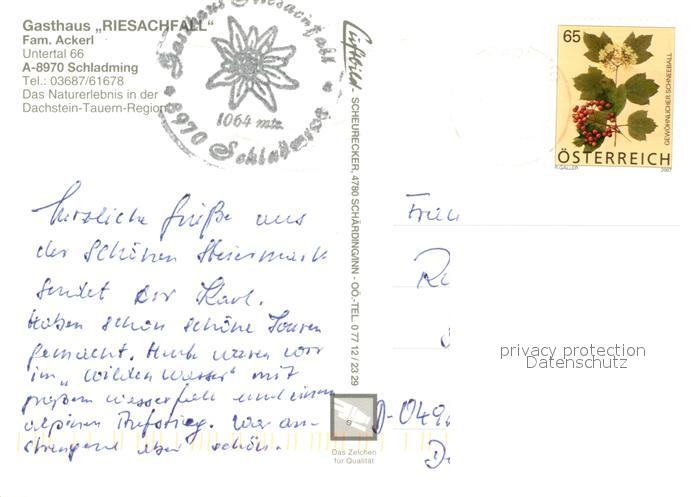 Gasthaus „RIESACHFALL"
Fam. Ackerl
Untertal 66
A-8970 Schladming
Tel.: 03687/61678
Das Naturerlebnis in der
Dachstein-Tauern-Region
Gasthaus Riesachfall
1064 mtr.
8970 Schladming
Herzliche Grüße aus
der schönen Steiermark
sendet Dir Karl.
Haben schon schöne Touren
gemacht. Heute waren wir
im „Wilden Wasser" mit
großem Wasserfall und einem
alpinen Aufstieg. War an-
strengend aber schön.
Luftbild - SCHEURECKER, 4780 SCHÄRDING/INN - OÖ.-TEL. 0 77 12 / 23 29
Das Zeichen
für Qualität
65
GEWÖHNLICHER SCHNEEBALL
ÖSTERREICH
R.GALLER 2007
D-049
privacy protection
Datenschutz